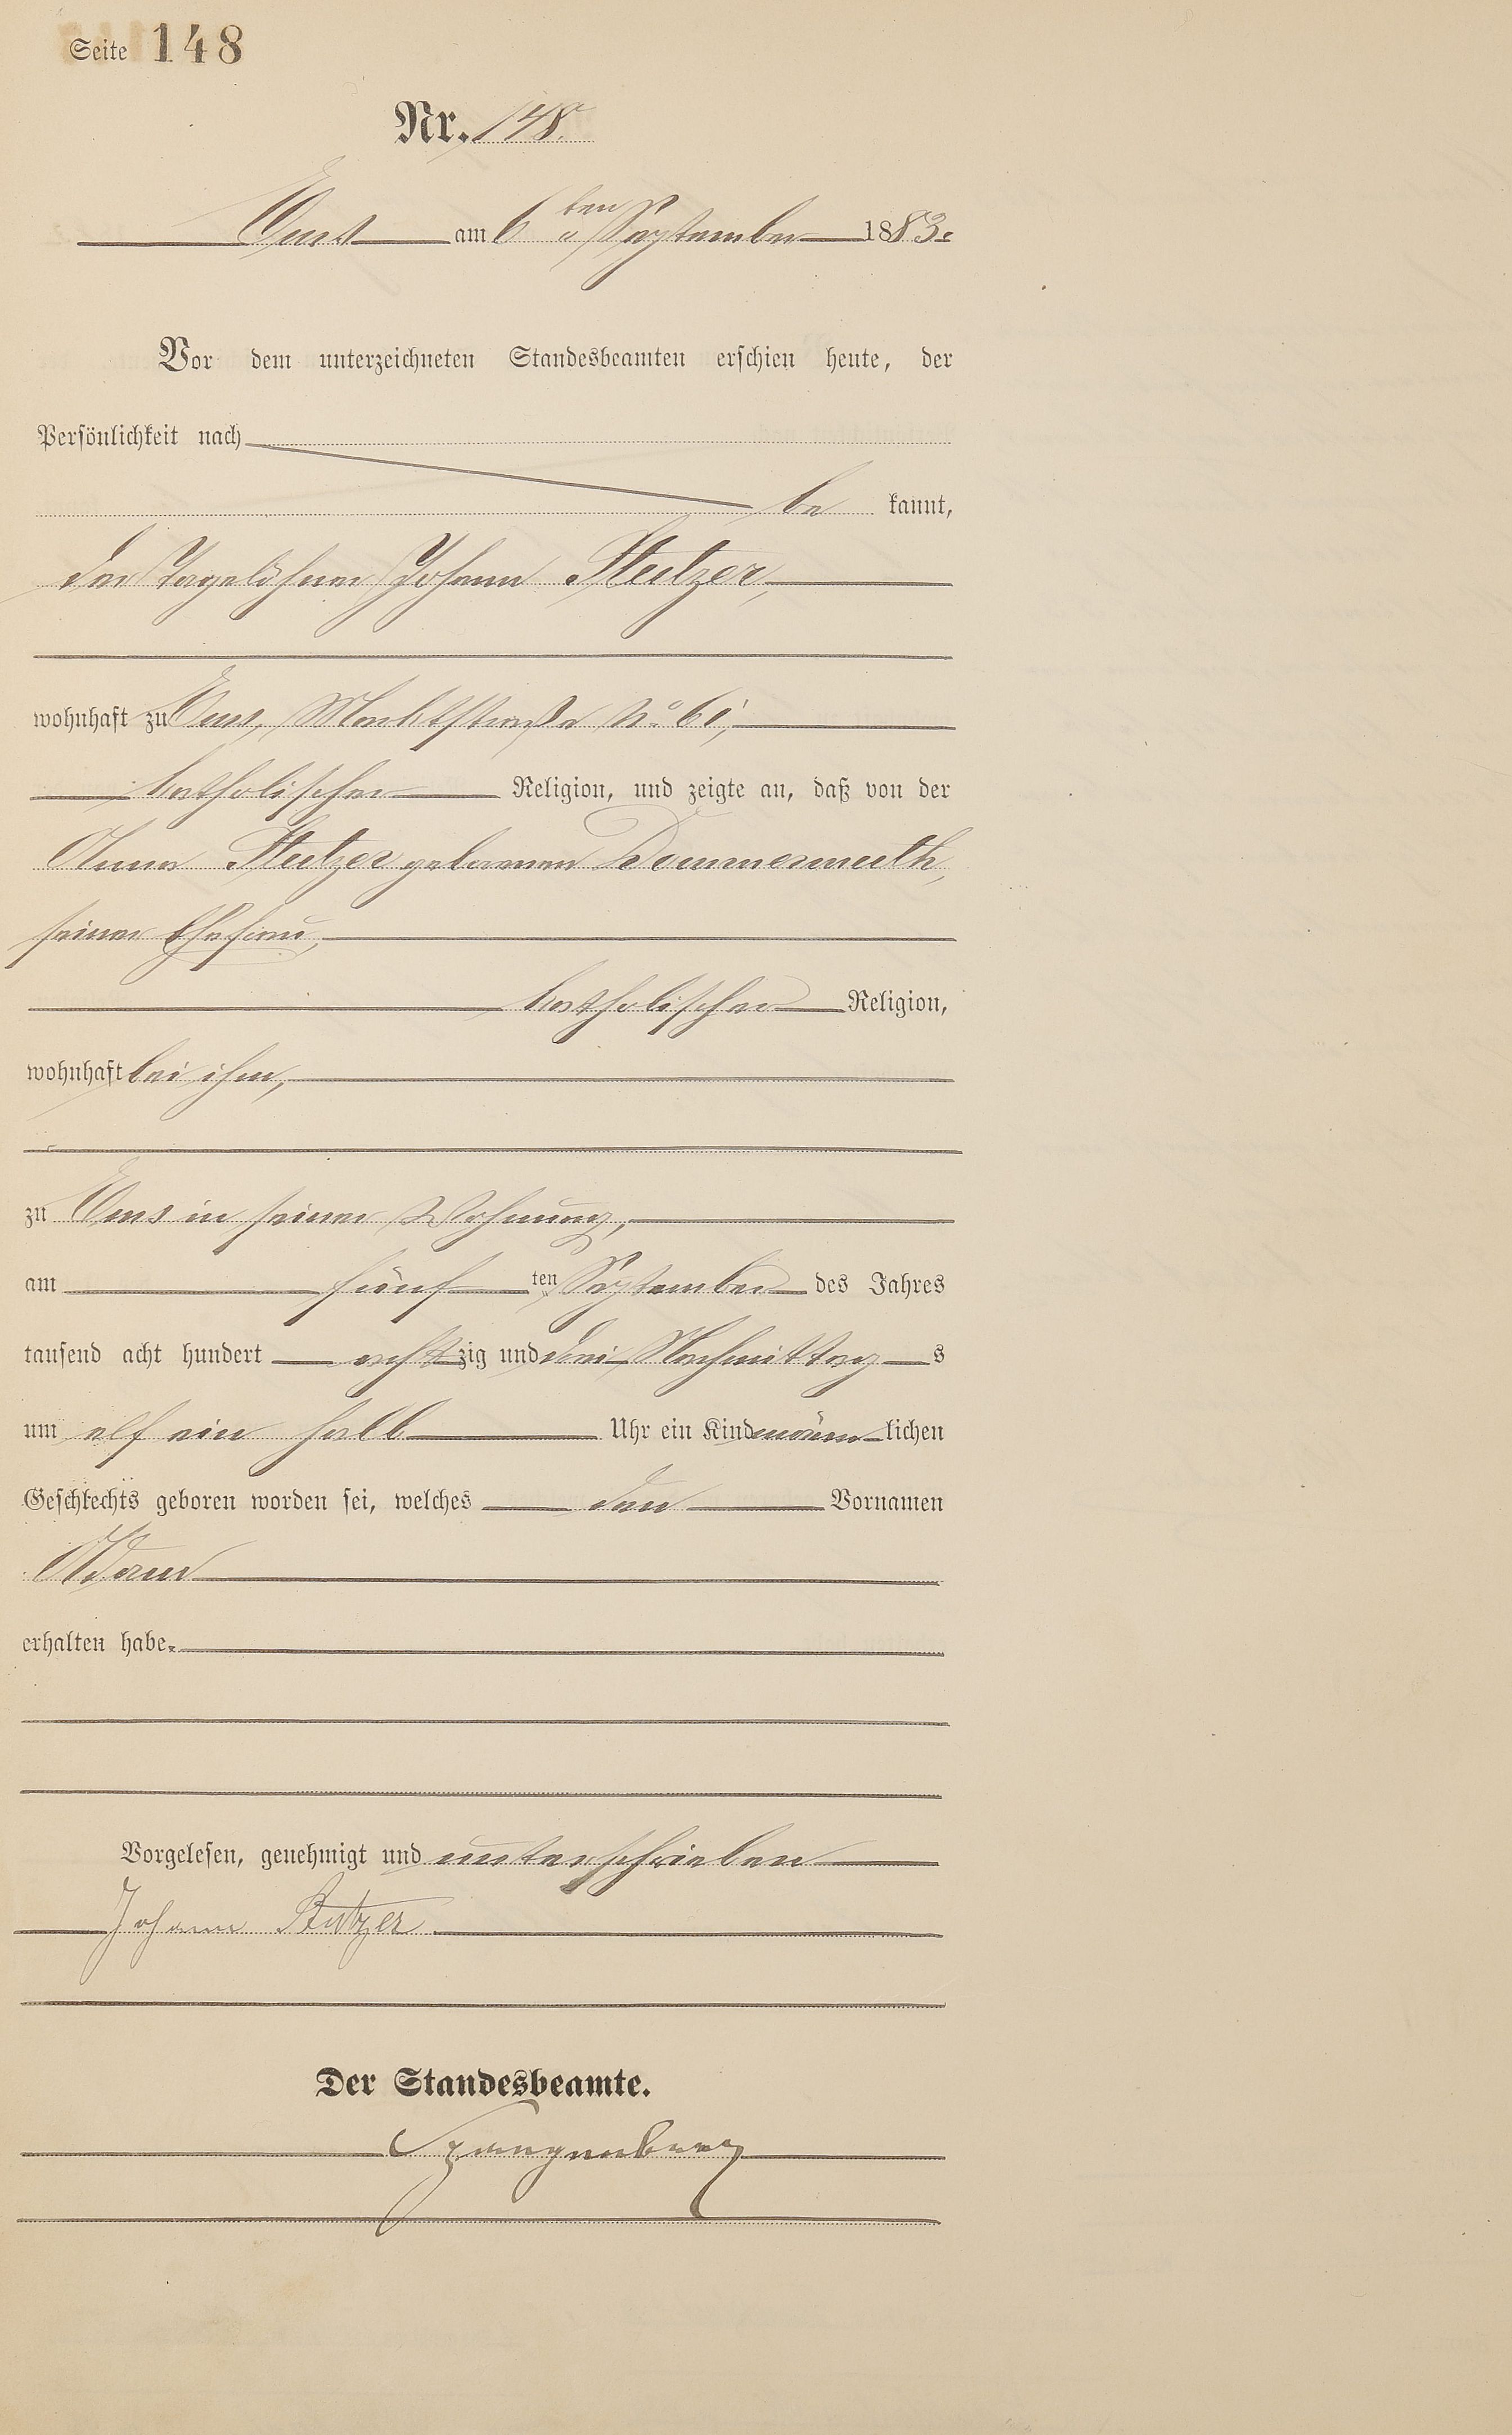 Seite 148
Nr. 148.
Ems am 6ten September 1883.
Vor dem unterzeichneten Standesbeamten erschien heute, der
Persönlichkeit nach
be kannt,
der Tagelöhner Johann Stutzer,
wohnhaft zu Ems, Marktstraße No 61,
katholischer Religion, und zeigte an, daß von der
Anna Stutzer geborenen Dommermuth,
seiner Ehefrau,
katholischer Religion,
wohnhaft bei ihm,
zu Ems in seiner Wohnung,
am fünf ten September des Jahres
tausend acht hundert acht zig und drei Nachmittag s
um elf ein halb Uhr ein Kind männ lichen
Geschlechts geboren worden sei, welches den Vornamen
Adam
erhalten habe.
Vorgelesen, genehmigt und unterschrieben
Johann Stutzer.
Der Standesbeamte.
Spangenberg